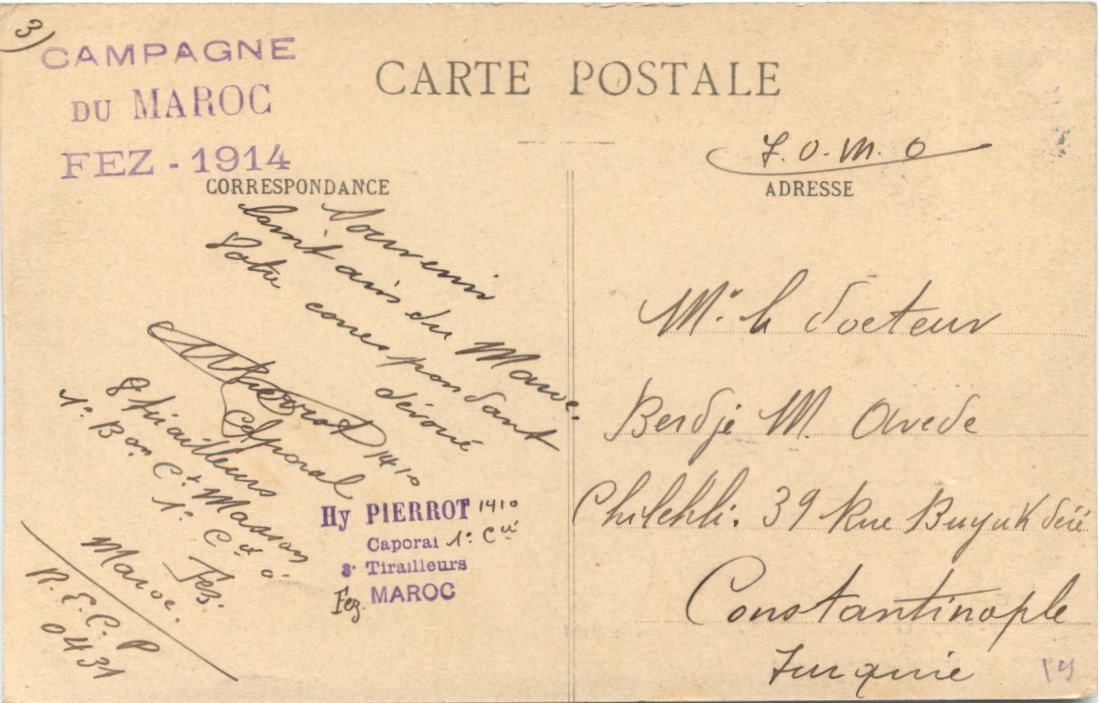 3)
CAMPAGNE
DU MAROC
FEZ - 1914
CARTE POSTALE
CORRESPONDANCE
Souvenir
du Maroc.
Votre correspondant
dévoué
Pierrot 1410
Caporal
8 tirailleurs
1e. Bon. Ct Masson
1e. Cie à
Fez.
Maroc.
R. E. C. P
0431
Hy PIERROT 1410
Caporal 1e. Cie
8e Tirailleurs
Fez. MAROC
J. O. M. O
ADRESSE
Mr. le Docteur
Berdje M. Avede
Chilehli. 39 Rue Buyuk déré
Constantinople
Turquie
19